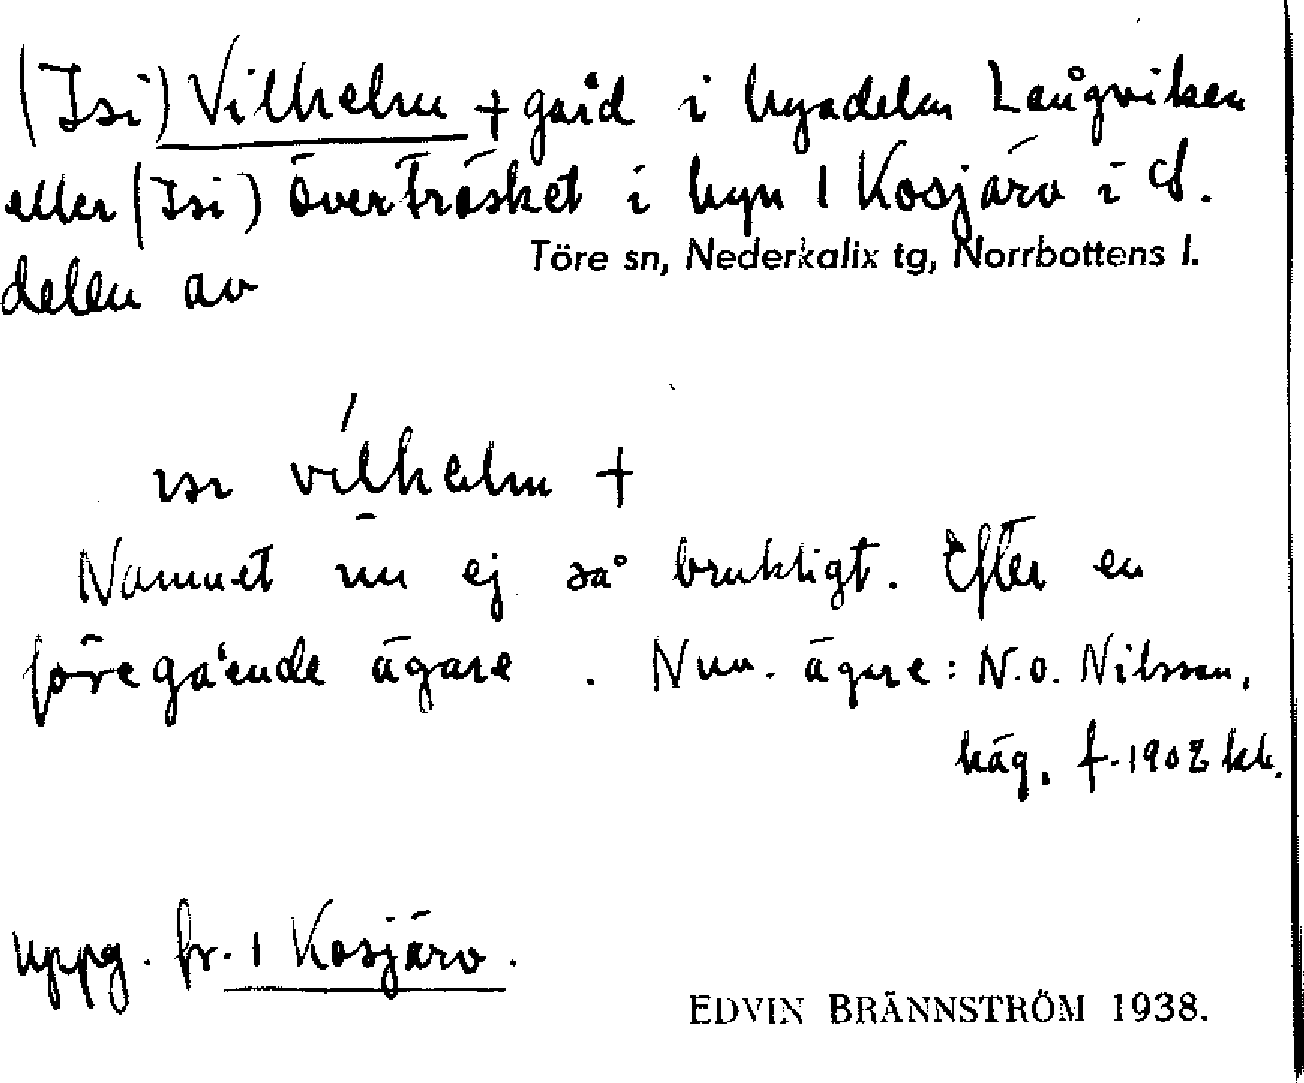 (Isi) Vilhelm + gård i byadelen Långviken
eller (Isi) Överträsket i byn 1 Kosjärv i S.
Töre sn, Nederkalix tg, Norrbottens l.
delen av
ısı vilhelm +
Namnet nu ej så brukligt. Efter en
föregående ägare. Nuv. ägare: N.O. Nilsson,
häg. f. 1902 kb.
uppg. fr. 1 Kosjärv.
EDVIN BRÄNNSTRÖM 1938.